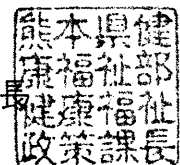 長
熊本県健
康福祉部
健康福祉
政策課長